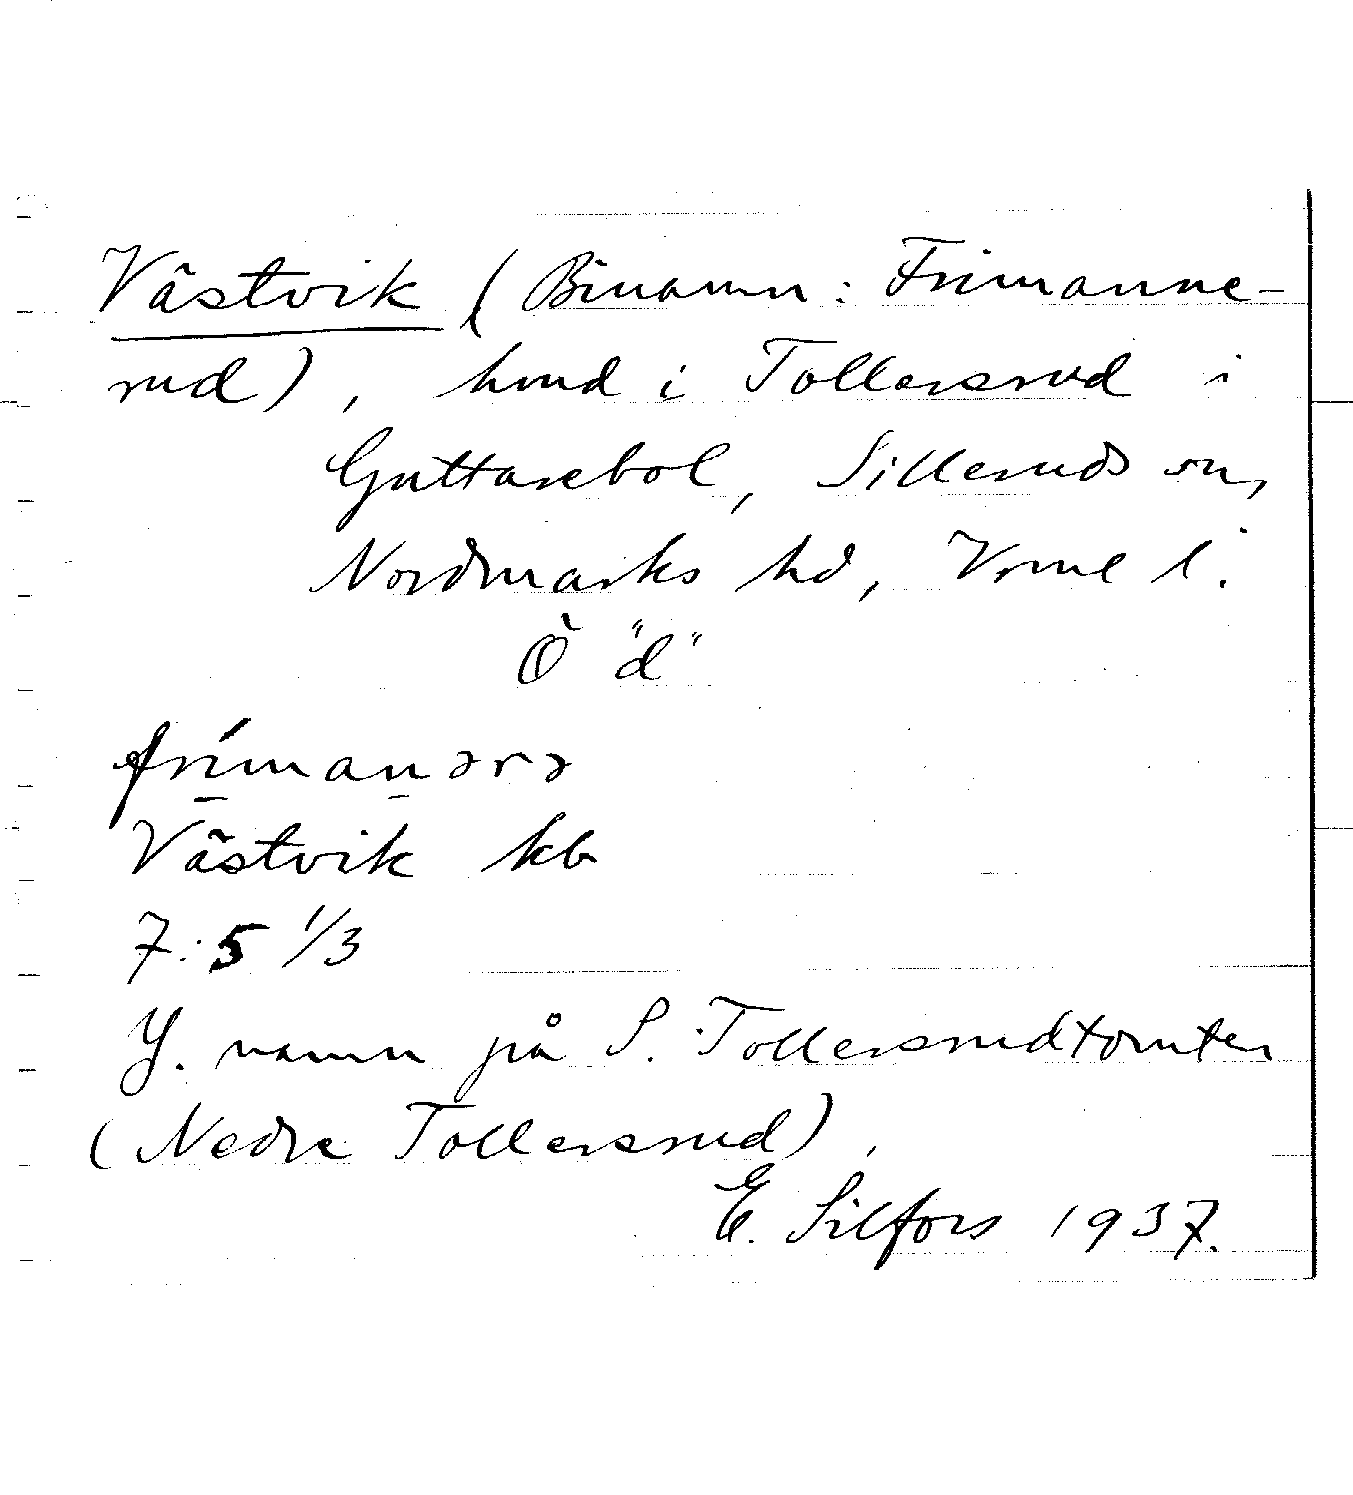 Västvik (Binamn: Frimanne-
rud), hmd i Tollersrud i
Guttarebol, Silleruds sn,
Nordmarks hd, Vrml l.
Ö "d"
frímanərə
Västvik kb
7:5 1/3
Y. namn på S. Tollersrudtomten
(Nedre Tollersrud),
E. Silfors 1937.